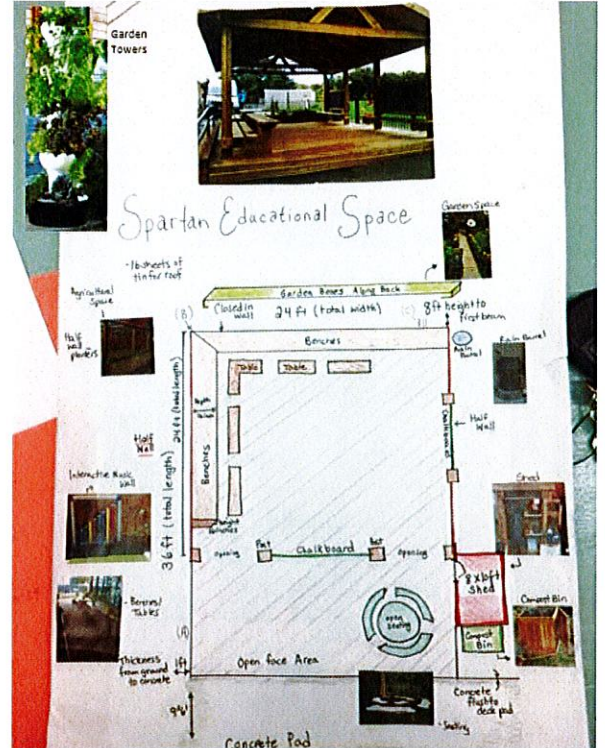 Garden
Towers
Spartan Educational Space
Garden Space
-16 sheets of
tin for roof
Agricultural
Space
Garden Boxes Along Back
(B)
Closed in
Wall
24 ft (total width)
(C)
8ft height to
first beam
Benches
Rain
Barrel
Rain Barrel
Half
wall
planters
Table
Table
24 ft (total length)
Depth
Half
Wall
Chalkboard
Half
Wall
Benches
36 ft (total length)
Interactive Music
Wall
Shed
height
benches
opening
Post
Chalkboard
Post
opening
8 x 10 ft
Shed
-Benches/
Tables
open
seating
Compost Bin
(A)
Compost
Bin
Thickness
from ground
to concrete
1ft
Open face Area
Concrete
flush to
deck pad
-Seating
Concrete Pad